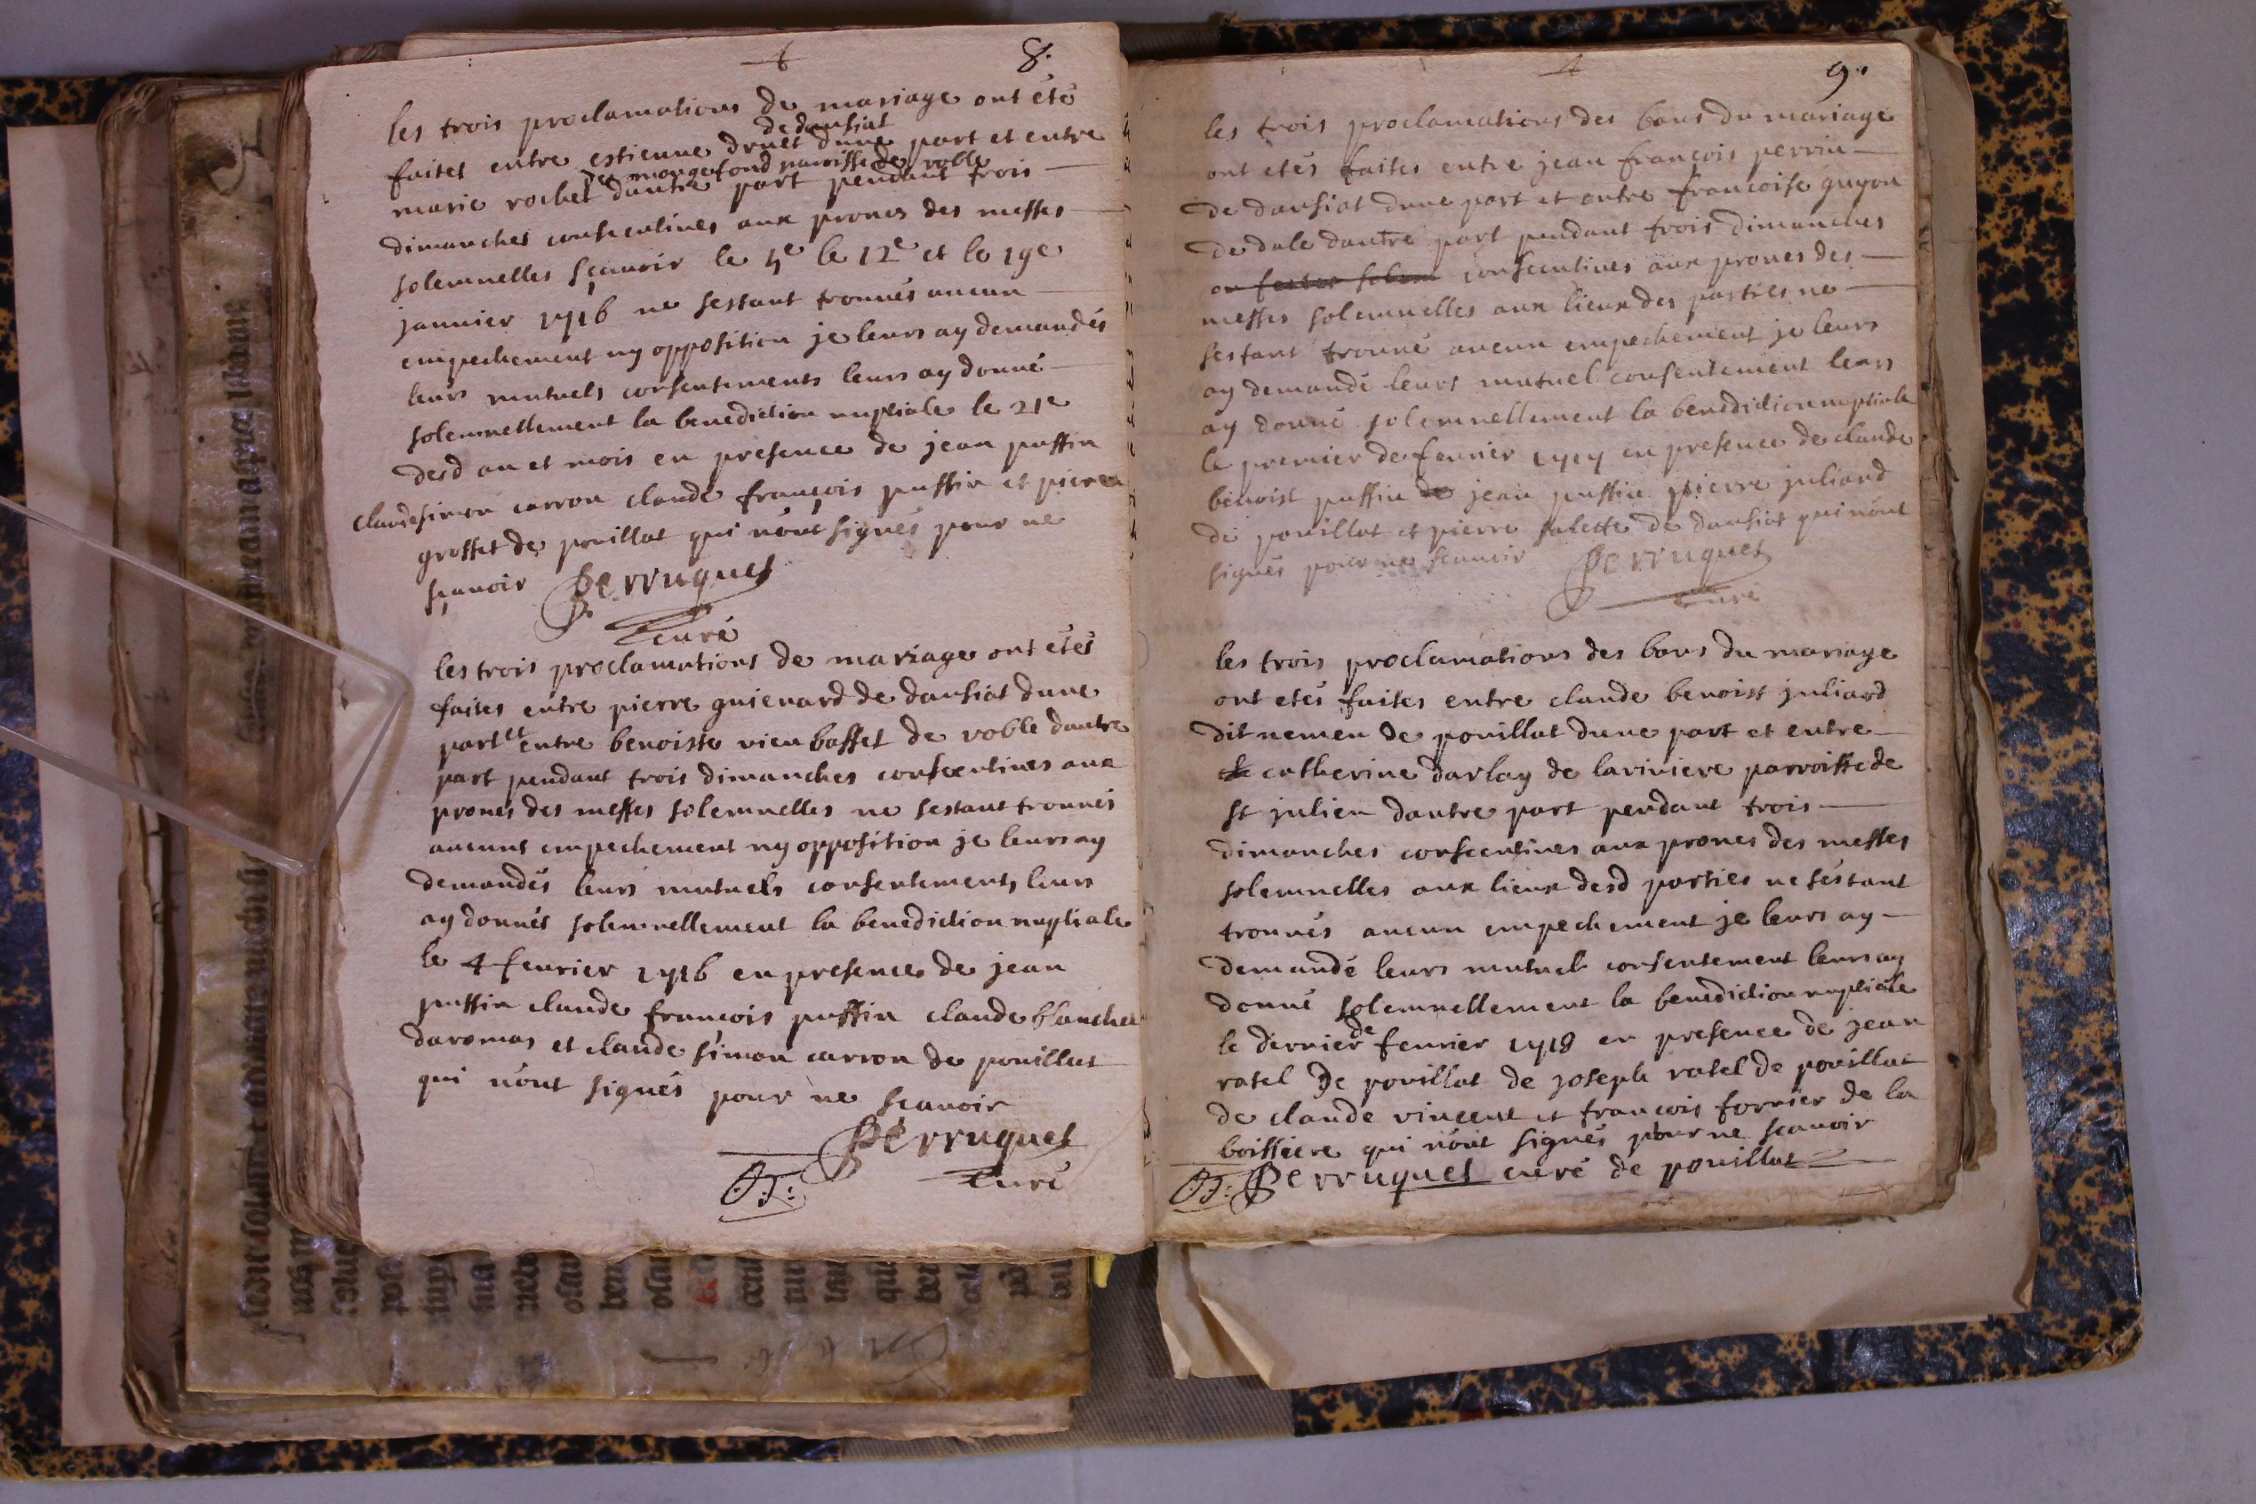 8.
les trois proclamations de mariage ont étés
de dansiat
faites entre estienne druet dune part et entre
de mongefond parroisse de roble
marie rochet dautre part pendant trois
dimanches consecutives aux prones des messes
solemnelles sçavoir le 5e le 12e et le 19e
janvier 1716 ne sestant trouvés aucun
empechement ny opposition je leurs ay demandés
leurs mutuels consentements leurs ay donné
solemnellement la benediction nuptiale le 21e
desd an et mois en presence de jean puffin
claude simon carron claude françois puffin et pierre
grosset de pouillat qui nont signés pour ne
sçavoir Perruquet
curé
les trois proclamations de mariage ont étés
faites entre pierre guienard de dansiat dune
part et entre benoiste vieu baffet de roble dautre
part pendant trois dimanches consecutives aux
prones des messes solemnelles ne sestant trouvés
aucuns empechement ny opposition je leurs ay
demandés leurs mutuels consentements leurs
ay donnés solemnellement la benediction nuptiale
le 4 fevrier 1716 en presence de jean
puffin claude françois puffin claude blanchet
daromas et claude simon carron de pouillat
qui nont signés pour ne scavoir
Perruquet
curé
9.
les trois proclamations des bans du mariage
ont etés faites entre jean françois perrin
de dansiat dune part et entre françoise guyon
de dale dautre part pendant trois dimanches
consecutives aux prones des
messes solemnelles aux lieux des parties ne
sestant trouvé aucun empechement je leurs
ay demandé leurs mutuel consentement leurs
ay donné solemnellement la benediction nuptiale
le premier de fevrier 1717 en presence de claude
benoist puffin de jean puffin pierre juliard
de pouillat et pierre falette de dansiat qui nont
signés pour ne scavoir Perruquet
curé
les trois proclamations des bans du mariage
ont etés faites entre claude benoist juliard
dit nemen de pouillat dune part et entre
catherine darlay de lariviere parroisse de
st julien dautre part pendant trois
dimanches consecutives aux prones des messes
solemnelles aux lieux desd parties ne séstant
trouvés aucun empechement je leurs ay
demandé leurs mutuel consentement leurs ay
donné solemnellement la benediction nuptiale
le dernier de fevrier 1718 en presence de jean
ratel de pouillat de joseph ratel de pouillat
de claude vincent et françois forrier de la
boissiere qui nont signés pour ne scavoir
Perruquet curé de pouillat